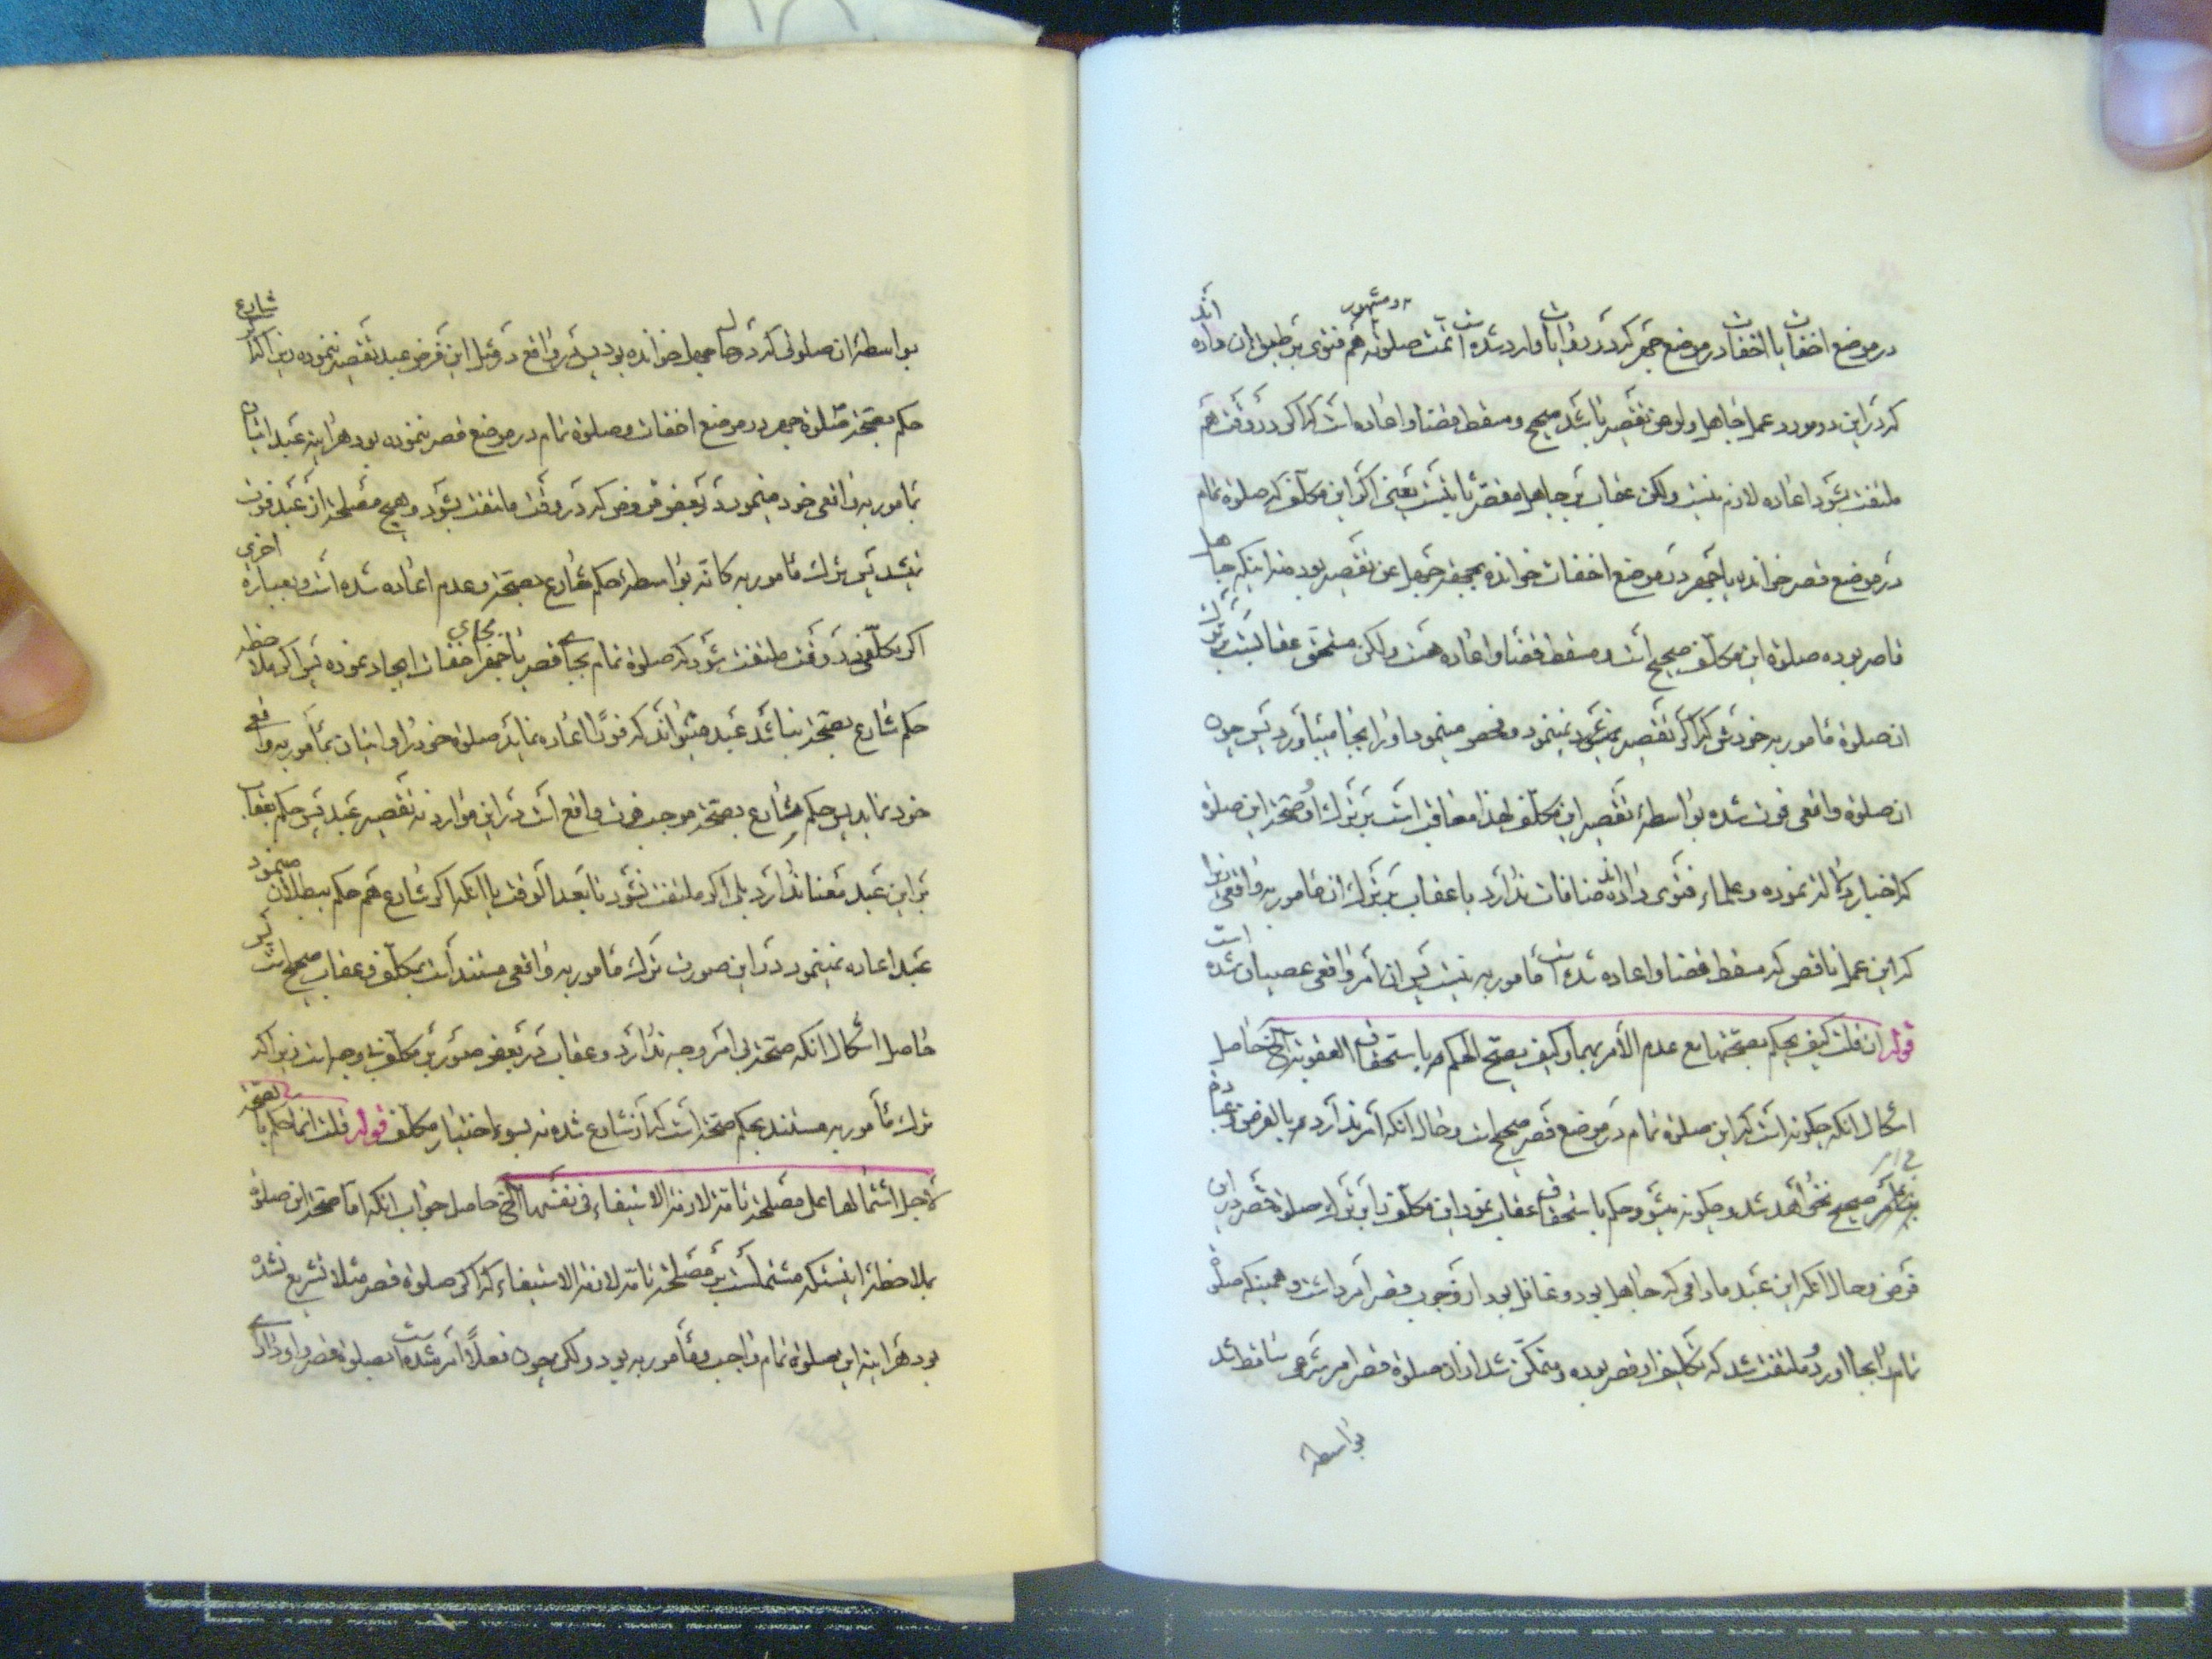 در موضع اخفات یا اخفات در موضع جهر کرد در روایات وارد شده است تمت صلوته و مشهور هم فتوی بر طبق ان داده اند
که در این دو مورد عمل جاهل ولو عن تقصیر باشد صحیح و مسقط قضا و اعاده است که اکر در وقت هم
ملتفت بشود اعاده لازم نیست ولکن عقاب بر جاهل مقصر ثابتست یعنی اکر این مکلف که صلوة تمام
در موضع قصر خوانده یا جهر در موضع اخفات خوانده جهلش جهل عن تقصیر بوده نه اینکه جاهل
قاصر بوده صلوة این مکلف صحیح است و مسقط قضا و اعاده هست ولکن مستحق عقابیست بر ترک
ان صلوة مامور به خودش که اکر تقصیر نمینمود و فحص مینمود او را اینجا میاورد پس چون
ان صلوة واقعی فوت شده بواسطهٔ تقصیر این مکلف لهذا معاقب است بر ترک او و صحت این صلوة
که اخبار دلالت نموده و علماء فتوی داده‌اند منافات ندارد با عقاب بر ترک ان مامور به واقعی زیرا
که این عمل ناقص که مسقط قضا و اعاده شده است مامور به نیست پس ان امر واقعی عصیان شده است
قوله ان قلت کیف یحکم بصحتها مع عدم الأمر بهما و کیف یصح الحکم باستحقاق العقوبة الخ حاصل
اشکال انکه چکونه است که این صلوة تمام در موضع قصر صحیح است و حال انکه امر ندارد بالفرض و عبادة
بی امر صحیح نخواهد شد و چکونه میشود حکم باستحقاق عقاب نمود این مکلف را بر ترک صلوة قصر در این
فرض و حال انکه این عبد مادامی که جاهل بود و غافل بود از وجوب قصر امر داشت و همینکه صلوة
تام را بجا اورد و ملتفت شد که تکلیف او قصر بوده و متمکن شد از ان صلوة قصر امر شرعی ساقط شد
بواسطهٔ
بواسطهٔ ان صلوتی که در حال جهل خوانده بود پس در واقع در مثل این فرض عبد تقصیر ننموده زیرا که اکر شارع
حکم بصحت صلوة جهر در موضع اخفات و صلوة تمام در موضع قصر ننموده بود هراینه عبد اتیان
بمامور به واقعی خود مینمود در بعض فروض که در وقت ملتفت بشود و هیچ مصلحتی از عبد فوت
نیشد پس ترک مامور به کانّه بواسطهٔ حکم شارع بصحت و عدم اعاده شده است و بعبارة اخری
اکر مکلفی در وقت ملتفت شود که صلوة تمام بجای قصر یا جهر بجای اخفات ایجاد نموده پس اکر ملاحظه
حکم شارع بصحت نباشد عبد میتواند که فوراً اعاده نماید صلوة خود را و اتیان بمامور به واقعی
خود نماید پس حکم شارع بصحت موجب فوت واقع است در این موارد نه تقصیر عبد پس حکم بعقاب
بر این عبد معنا ندارد بلی اکر ملتفت نشود تا بعد الوقت یا انکه اکر شارع هم حکم ببطلان مینمود
عبد اعاده نمینمود در این صورت ترک مامور به واقعی مستند است بمکلف و عقاب صحیح است پس
حاصل اشکال انکه صحت بی امر وجه ندارد و عقاب در بعض صور بر مکلف بی وجه است زیرا که
ترک مامور به مستند بحکم صحت است که از شارع شده نه بسوء اختیار مکلف قوله قلت انما حکم بالصحة
لأجل اشتمالها على مصلحة تامة لازمة الاستیفاء فی نفسها الخ حاصل جواب انکه اما صحت این صلوة
بملاحظهٔ اینستکه مشتملست بر مصلحت تامّه لازمة الاستیفاء که اکر صلوة قصر مثلا تشریع نشده
بود هراینه این صلوة تمام واجب و مامور به بود ولکن چون فعلاً امر شده است بصلوة قصر و او دارای